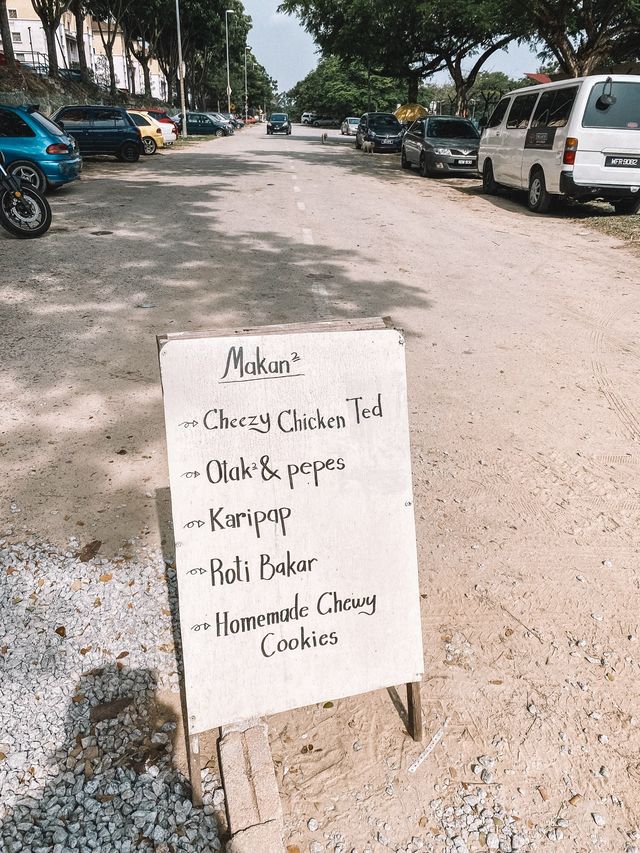 Makan²
Cheezy Chicken Ted
Otak² & pepes
Karipap
Roti Bakar
Homemade Chewy
Cookies
WFR9082